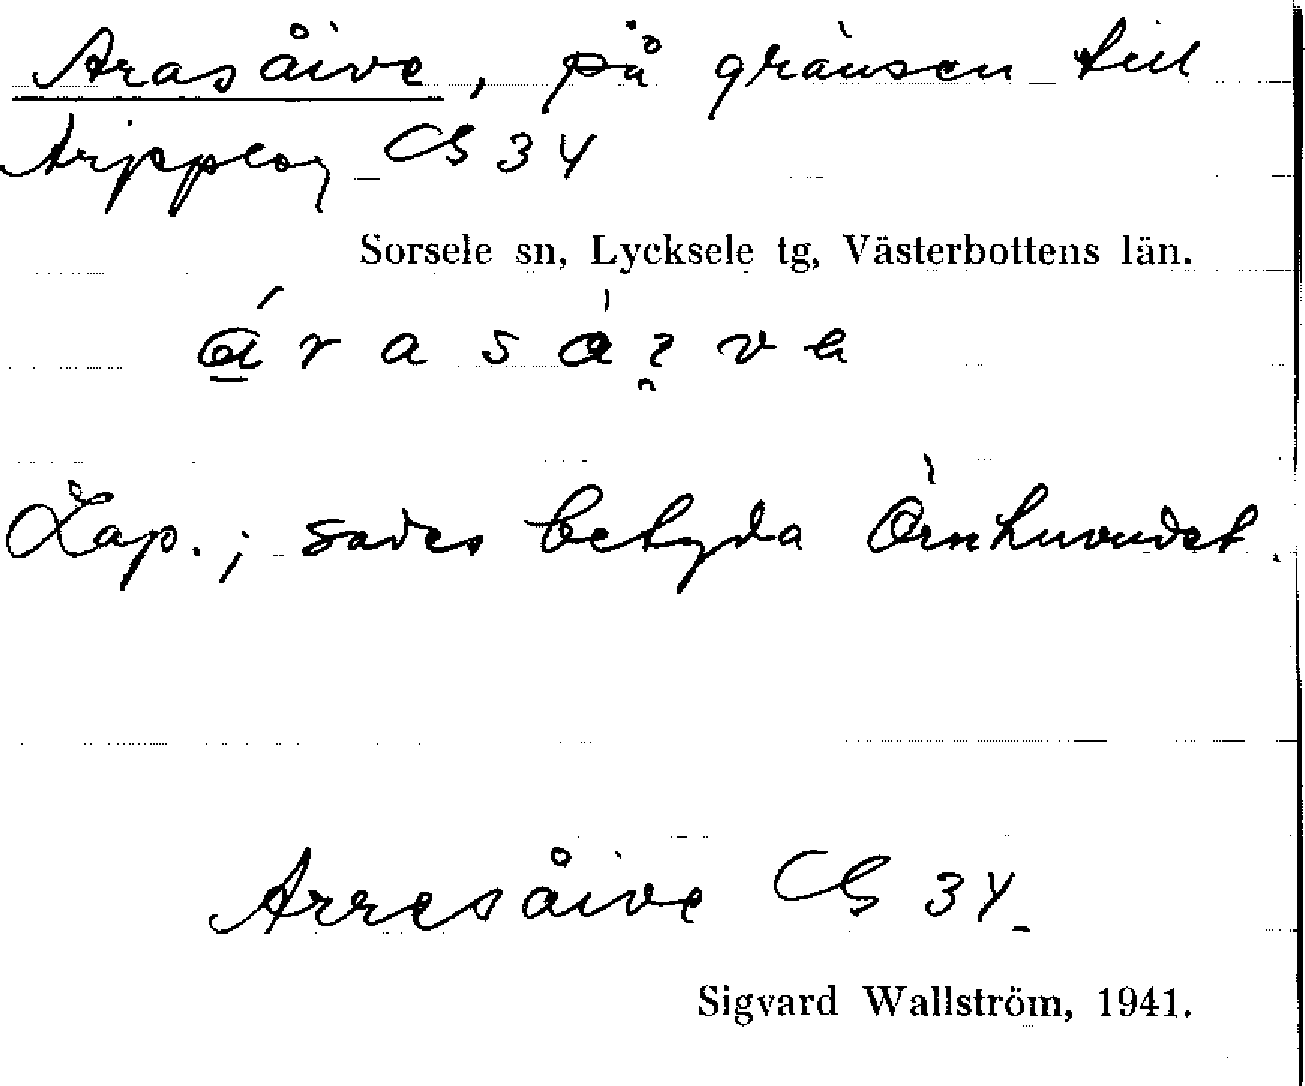 Arasåive, på gränsen till
Arjeplog CG 34
Sorsele sn, Lycksele tg, Västerbottens län.
Lap.; sades betyda Örnhuvudet.
Arresåive CG 34
Sigvard Wallström, 1941.